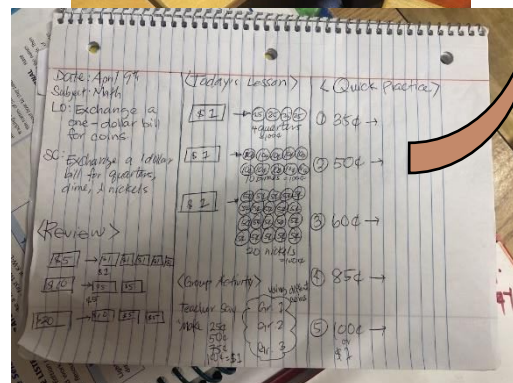 Date: April 9th
Subject: Math
LO: Exchange a
one-dollar bill
for coins
SC: Exchange a 1 dollar
bill for quarters,
dime, & nickels
<Review>
$5 → $1 $1 $1 $1 $1
$10 → $5 $5
$20 → $10 $5 $5
<Today's Lesson>
$1 → 25 25 25 25
4 quarters
$1 →
10 dimes
$1 →
20 nickels
<Group Activity>
Teacher Say
Make 25¢
50¢
75¢
100¢=$1
Gr. 1
Gr. 2
Gr. 3
<Quick Practice>
① 35¢ →
② 50¢ →
③ 60¢ →
④ 85¢ →
⑤ 100¢ →
or
$1